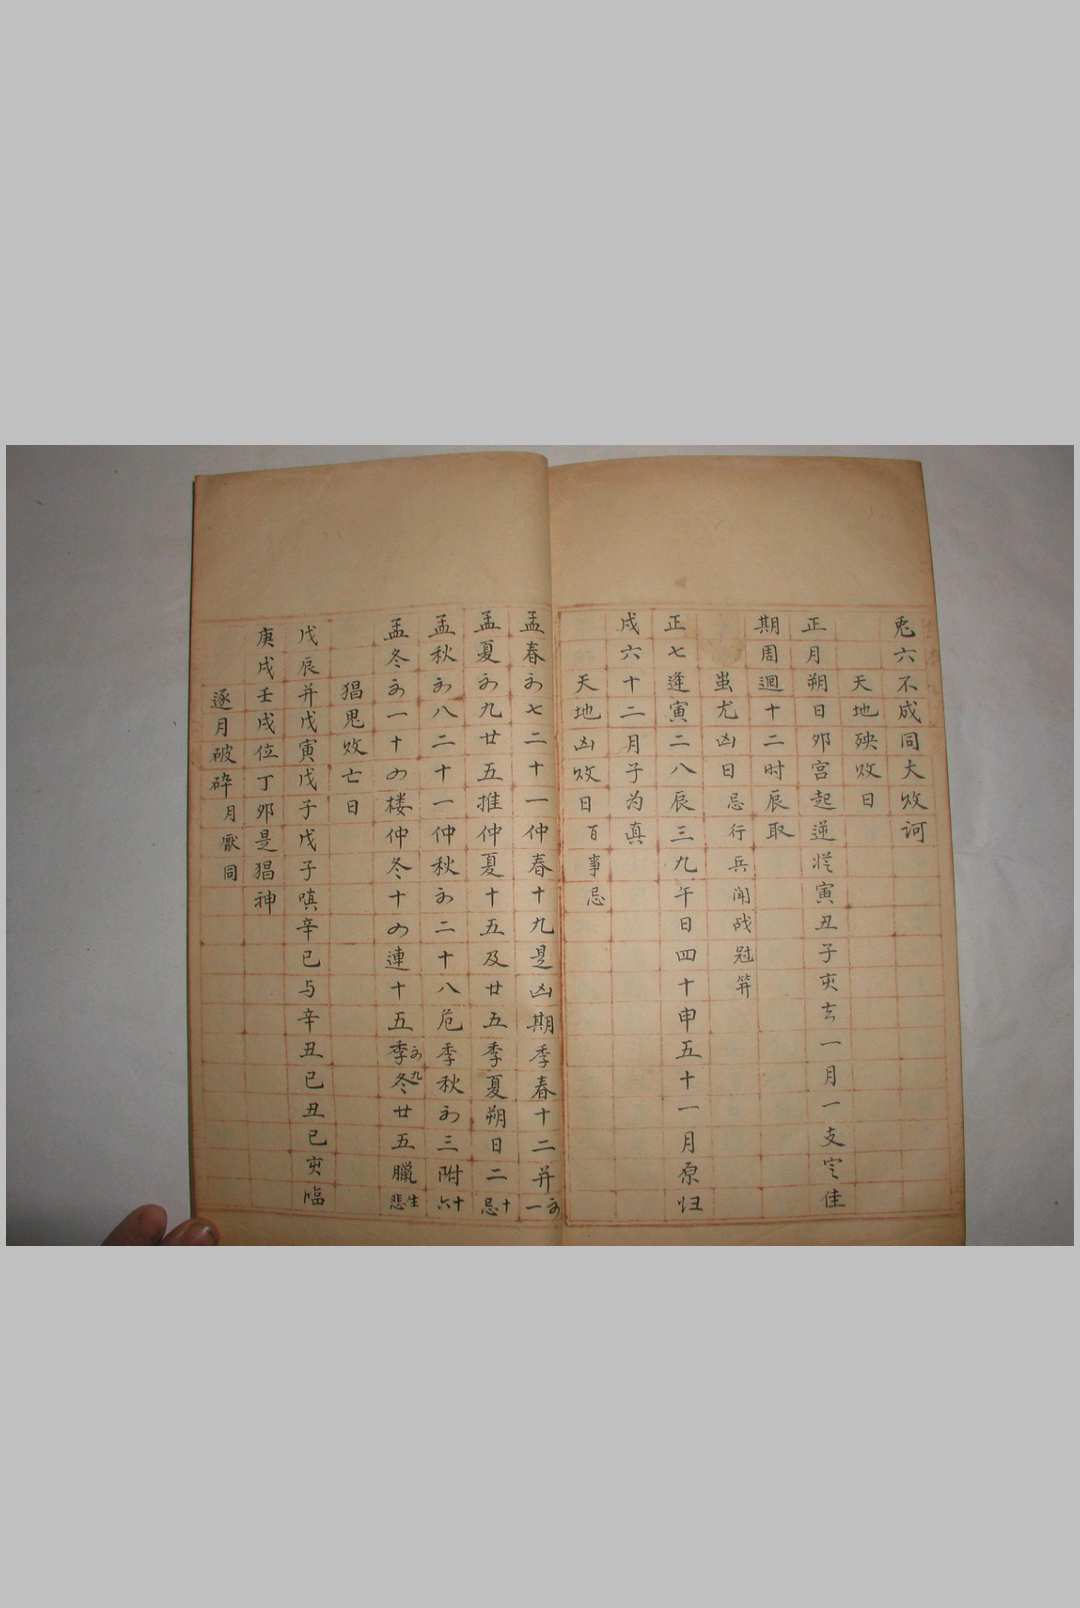 兎六不成同大败诃
天地殃败日
正月朔日卯宫起逆从寅丑子亥去一月一支定佳
期周迴十二时辰取
蚩尤凶日忌行兵闻战冠笄
正七逢寅二八辰三九午日四十申五十一月原归
戌六十二月子为真
天地凶败日百事忌
孟春初七二十一仲春十九是凶期季春十二并初一
孟夏初九廿五推仲夏十五及廿五季夏朔日二十忌
孟秋初八二十一仲秋初二十八危季秋初三附十六
孟冬初一十四楼仲冬十四連十五季冬初九廿五臘生悲
猖鬼败亡日
戊辰并戊寅戊子戊子嗔辛巳与辛丑己丑己亥临
庚戌壬戌位丁卯是猖神
逐月破碎月厭同